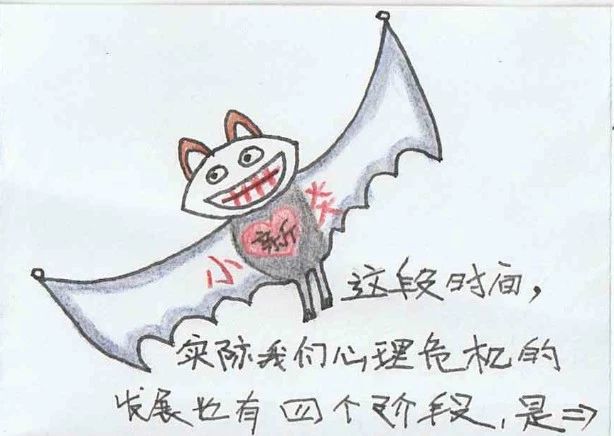 小
新
关
这段时间，
实际我们心理危机的
发展也有四个阶段，是⇒